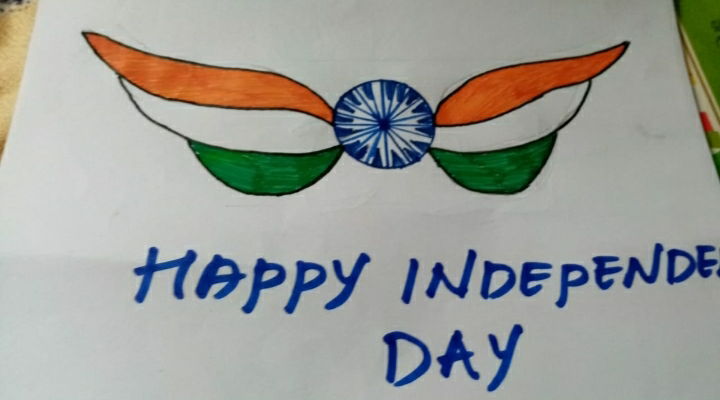 HAPPY INDEPENDE
DAY